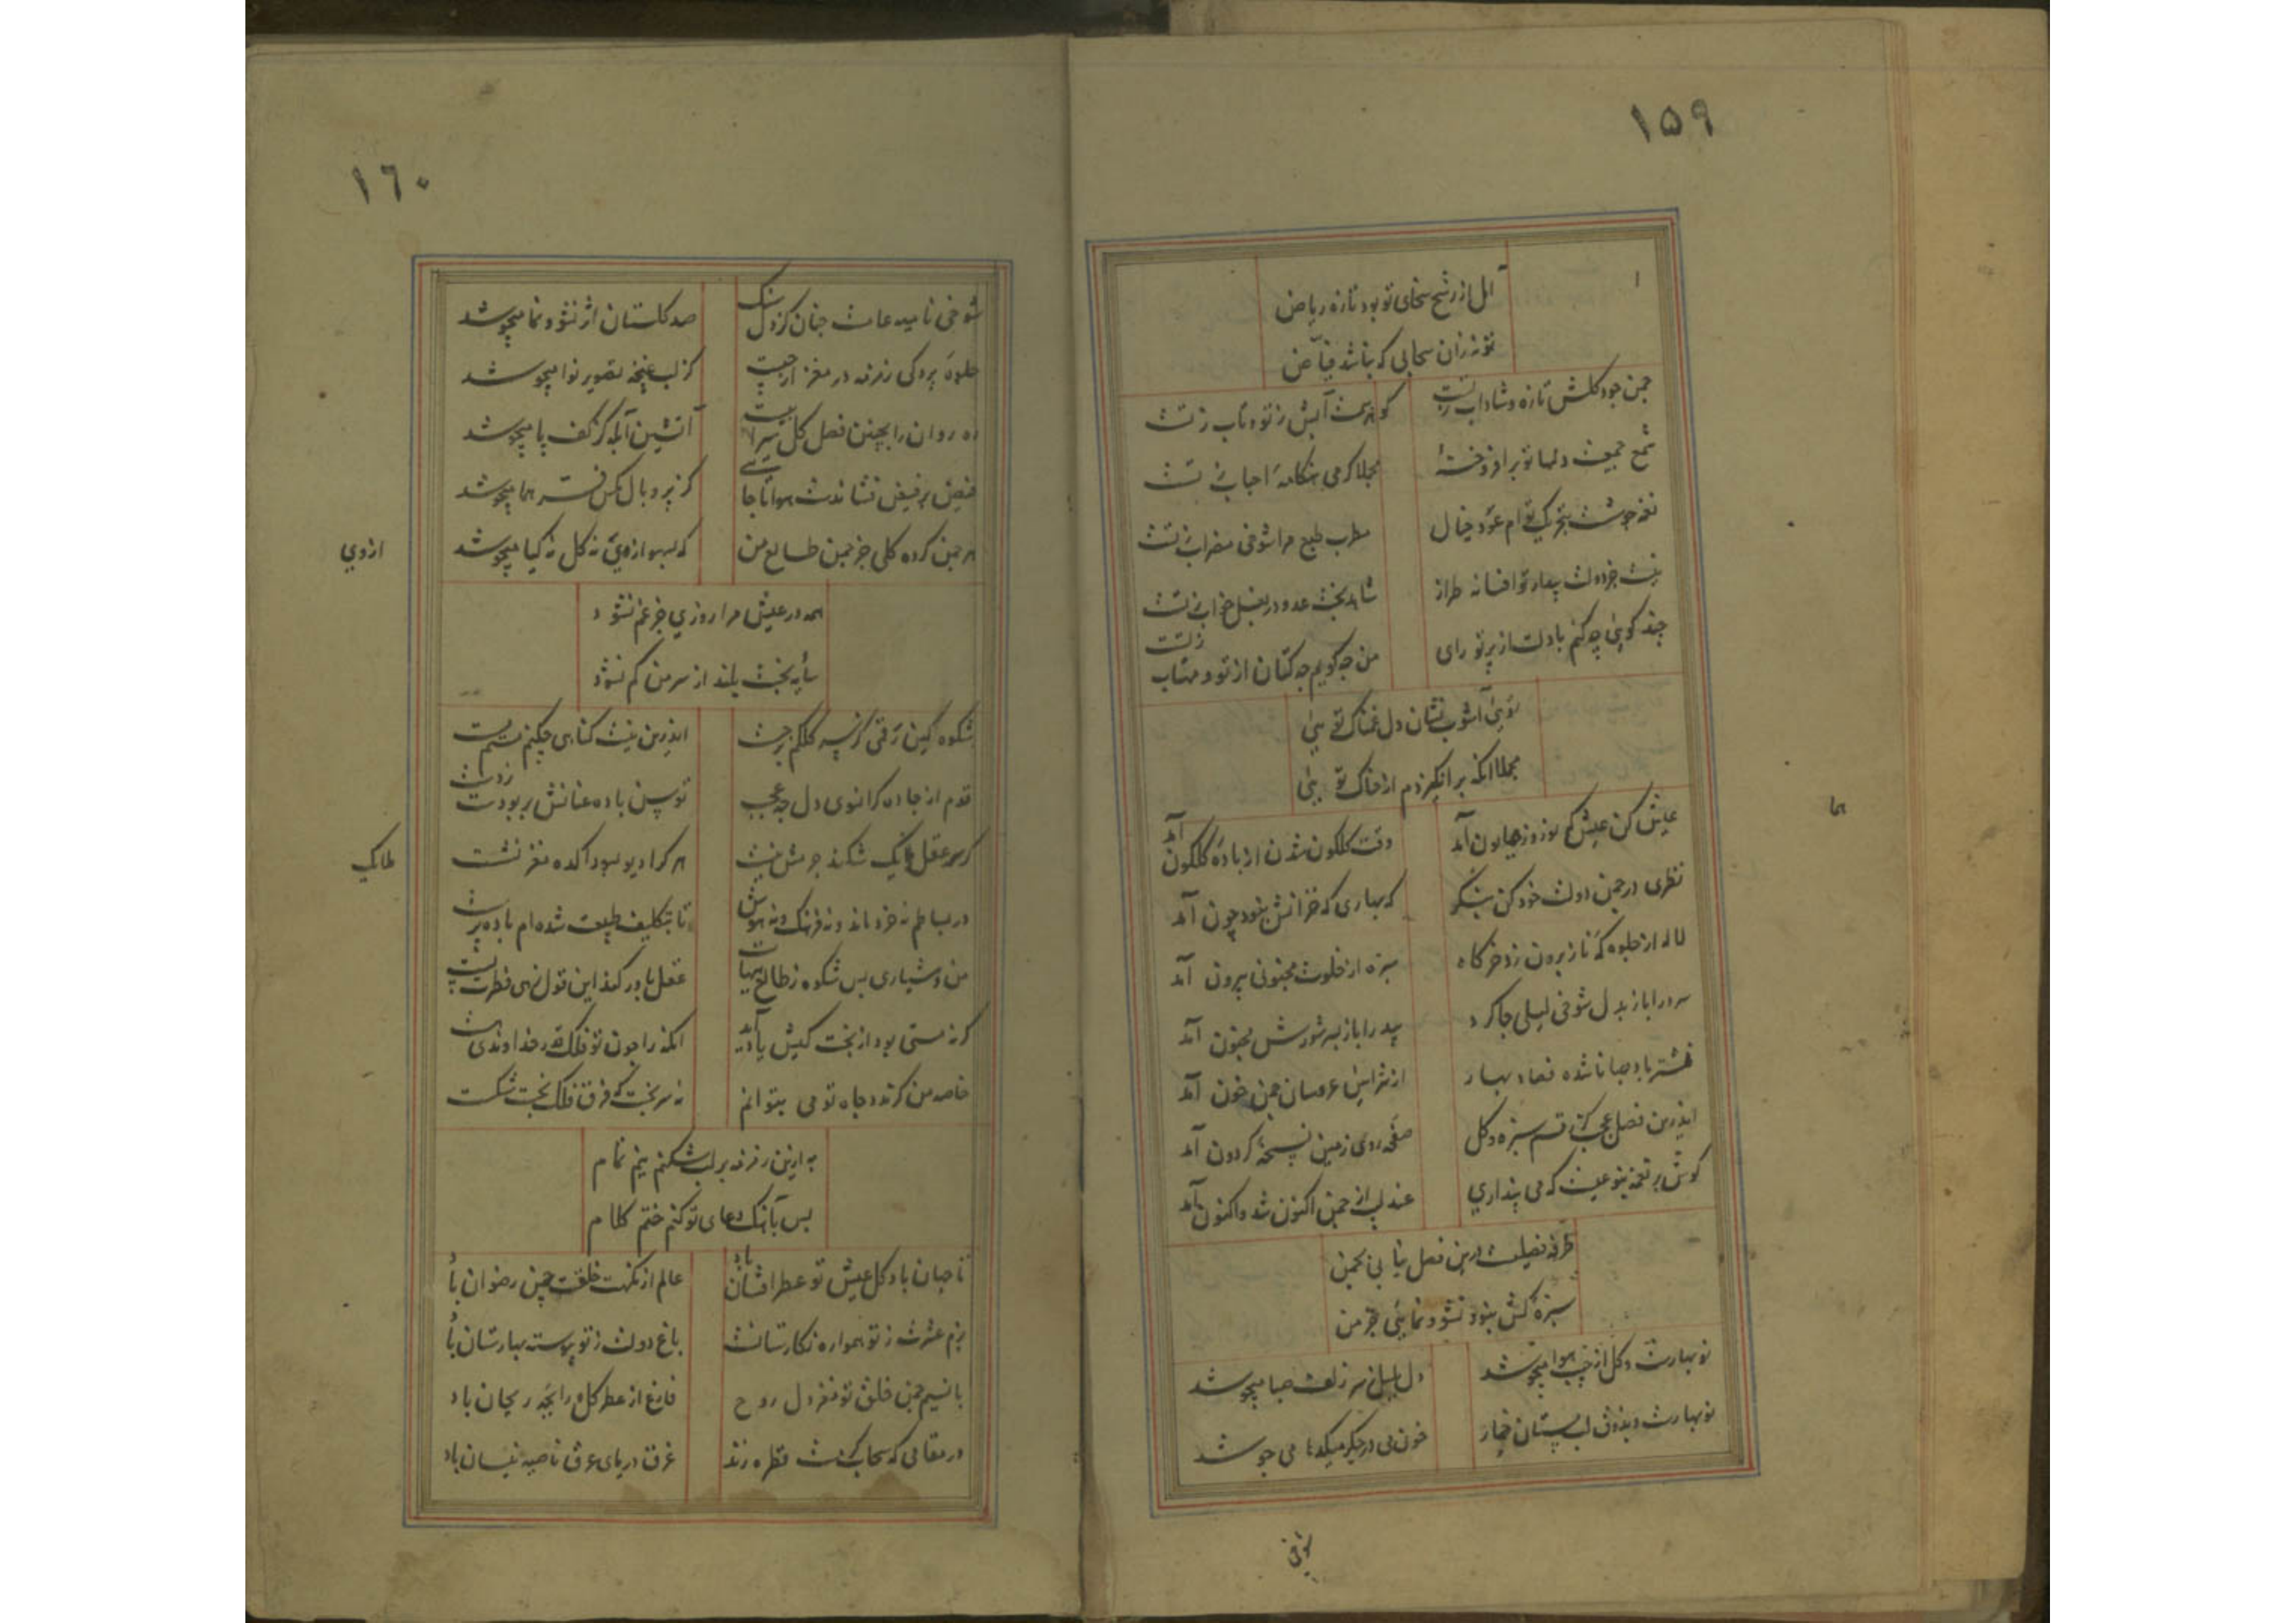 ١٥٩
امل از رشح سخای تو بود تازه ریاض
تو نه زان سحابی که نباشد فیاض
چمن جود گلش تازه و شاداب ز تست
گوهرست آبش ز تو و تاب ز تست
شمع جمعیت دلها تو برافروختهٔ
مجلا گرمی هنکامهٔ احباب ز تست
نغمه جوشست بتحریک توام عود خیال
مطرب طبع مرا شوخی مضراب ز تست
نیست جز دولت بیدار تو افسانه طراز
شاهد بخت عدو در بغل خواب ز تست
چند کویی چه کنم با دلت از پرتو رای
من چه کویم چه کتان از تو و مهتاب ز تست
تویی آشوب نشان دل غمناک تویی
مجملا انکه برانکیزدم از خاک تویی
عیش کن عیش که نوروز همایون آمد
وقت کلکون شدن از بادهٔ کلکون آمد
هما
نظری در چمن دولت خود کن بنکر
که بهاری که خزانش نبود چون آمد
لاله از جلوه که ناز برون زد خرکاه
سبزه از خلوت مجنونی بیرون آمد
سرو را باز بدل شوخی لیلی جا کرد
بید را باز بسر شورش مجنون آمد
نشتر باد صبا تا شده فصاد بهار
از شرایین عروسان چمن خون آمد
اندرین فصل عجب کز قسم سبزه و کل
صفحه روی زمین نسخهٔ کردون آمد
کوش بر نغمه نو عیت که می پنداری
عندلیب از چمن اکنون شد و اکنون آمد
طرفه فصلیست درین فصل نیابی بچمن
سبزهٔ کش نبود نشو و نمایی جز من
نو بهارست و کل از جیب هوا میجوشد
دل بلبل ز سر زلف صبا میجوشد
نو بهارست و بذوق لب پستان خمار
خون می در جکر میکدها می جوشد
شوخی
١٦٠
شوخی نامیه عامست چنان کز دل سنک
صد کلستان اثر نشو و نما میجوشد
جلوهٔ پردکی زمزمه در مغز از چیست
کز لب غنچه تصویر نوا میجوشد
ره روان را بچنین فصل کل سیرابیست
آتشین آبله کز کف پا میجوشد
فیض بر فیض فشاندست هوا تا جایی
کز پر و بال مکس فر هما میجوشد
هر چمن کرده کلی جز چمن طالع من
که بسهو از وی نه کل نه کیا میجوشد
ازوی
همه در عیش مرا روزی جز غم نشود
سایه بخت بلند از سر من کم نشود
شکوه کین رقمی کز نسبه کلکم برجست
اندرین نیست کناهی چکنم مستم مست
قدم از جاده کرانوی دل چه عجب
توسن باده عنانش بربودت ز دست
کر سر عقل بانک شکند جرمش نیست
هر کرا دیو بسودا کده مغز نشست
طالک
در بساطم نه خرد ماند و نه فرهنک و نه هوش
تا بتکلیف طبیعت شده ام باده پرست
من و هشیاری پس شکوه ز طالع هیهات
عقل باور نکند این قول زهی فطرت پست
کر نه مستی بود از بخت کیش یاد آید
انکه را چون تو فلک قدر خداوندی هست
خاصه من کز مدد جاه تو می بتوانم
نه سر بخت که فرق فلک بخت شکست
به ازین زمزمه بر لب شکنم نیم تمام
پس بآهنک دعای تو کنم ختم کلام
تا جهان باد کل عیش تو عطر افشان باد
عالم از نکهت خلقت چمن رضوان باد
بزم عشرت ز تو همواره نکارستانست
باغ دولت ز تو پیوسته بهارستان باد
با نسیم چمن خلق تو مغز دل روح
فارغ از عطر کل و رایحهٔ ریحان باد
در مقامی که سحاب کرمت قطره زند
غرق دریای عرق ناصیه نیسان باد